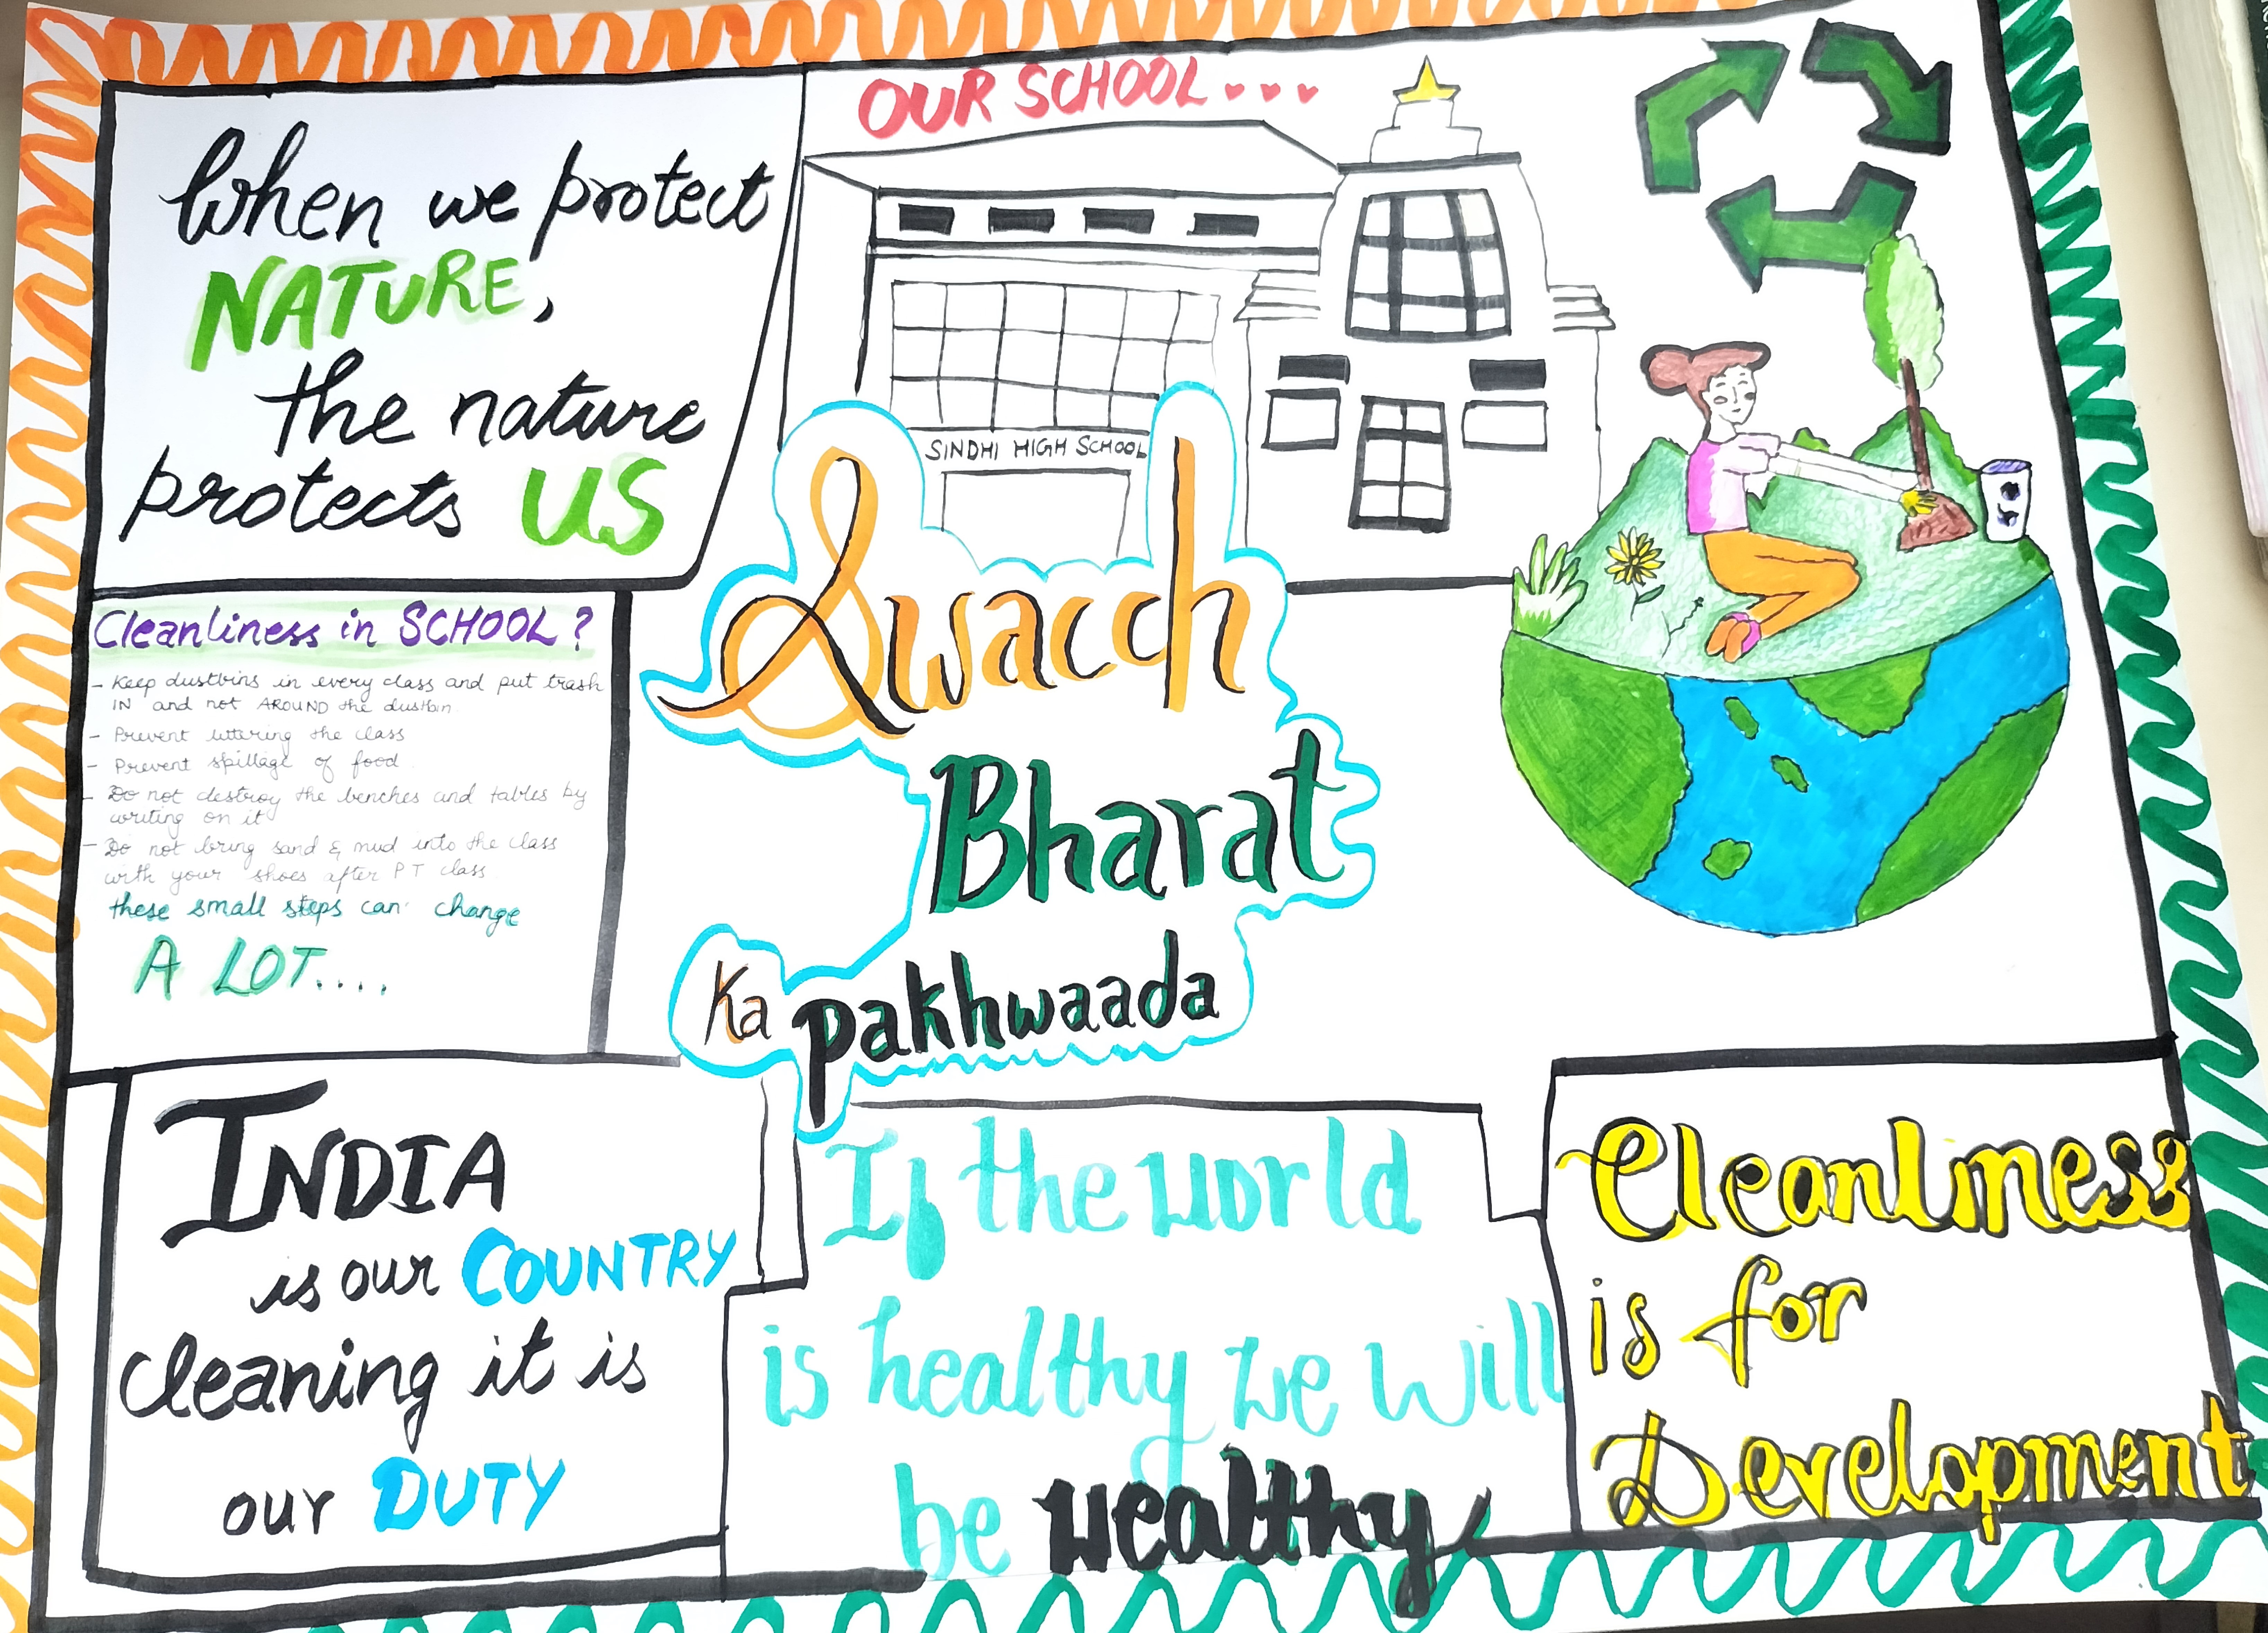 When we protect
NATURE,
the nature
protects US
OUR SCHOOL...
SINDHI HIGH SCHOOL
Swacch
Bharat
Ka pakhwaada
Cleanliness in SCHOOL?
- Keep dustbins in every class and put trash
IN and not AROUND the dustbin
- Prevent littering the class
- Prevent spillage of food
- Do not destroy the benches and tables by
writing on it
- Do not bring sand & mud into the class
with your shoes after PT class
these small steps can change
A LOT....
INDIA
is our COUNTRY
cleaning it is
our DUTY
If the world
is healthy we will
be wealthy
Cleanliness
is for
Development